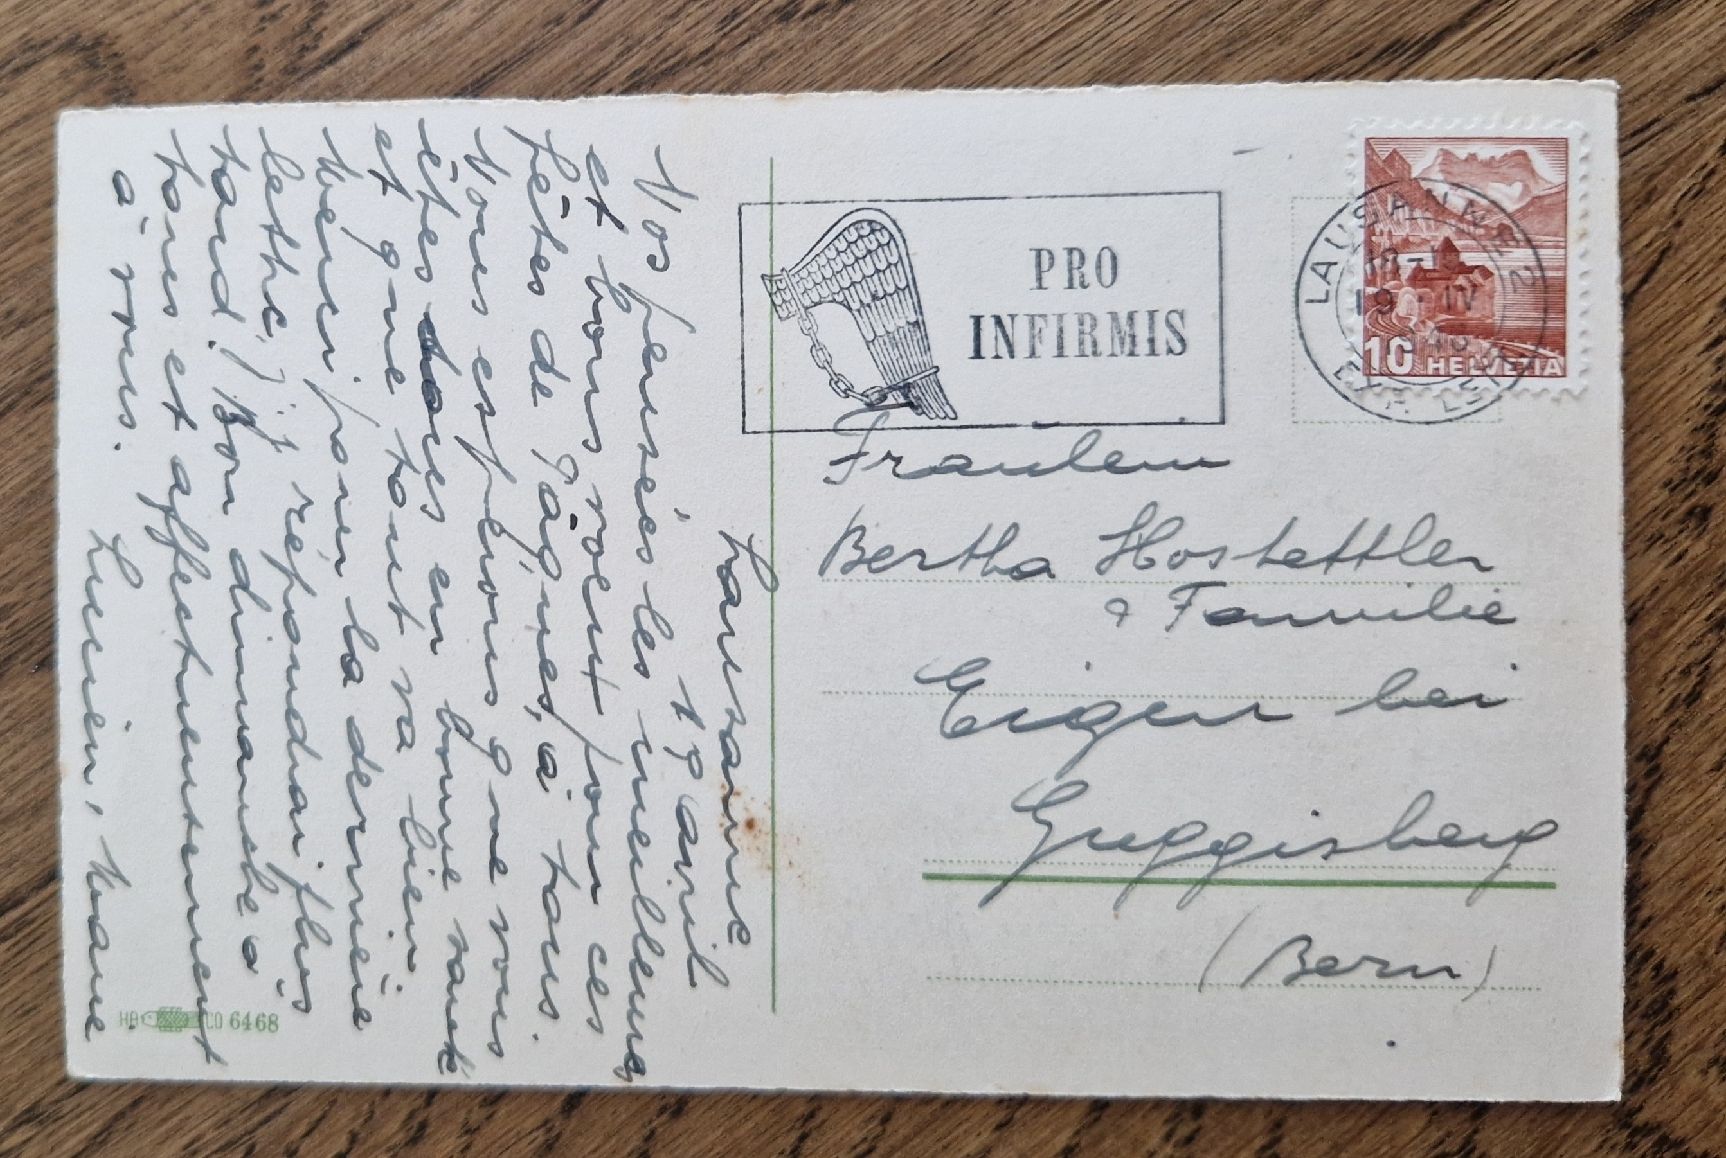 Lausanne
19 avril
Nos pensées les meilleures
et bons voeux pour ces
fêtes de Pâques, à tous.
Nous espérons que vous
êtes tous en bonne santé
et que tout va bien.
Merci pour la dernière
lettre, j'y répondrai plus
tard. Bon dimanche à
tous et affectueusement
à vous.
Lucien, Marie
HA CO 6468
PRO
INFIRMIS
LAUSANNE 2
19 IV
EXP. LET
10 HELVETIA
Fräulein
Bertha Hostettler
& Familie
Eigen bei
Guggisberg
(Bern)